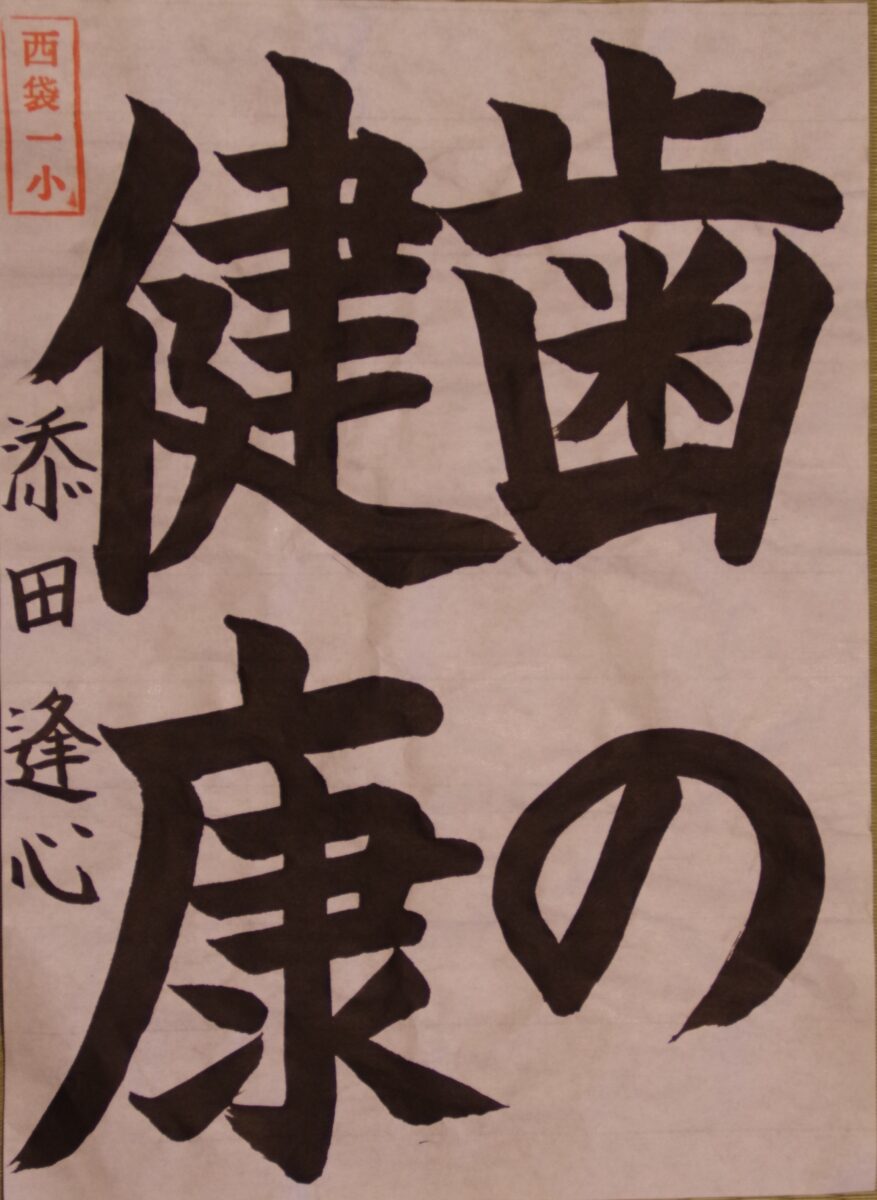 歯の
健康
西袋一小
添田逢心